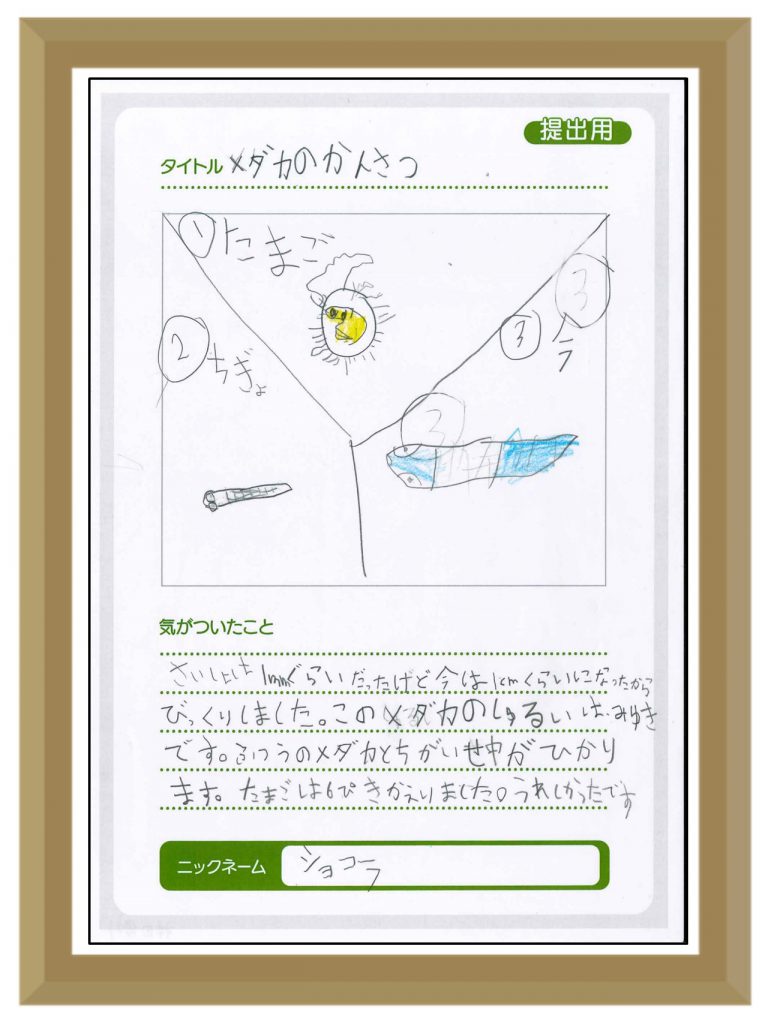 提出用
タイトル メダカのかんさつ
① たまご
② ちぎょ
③
③ 今
③
気がついたこと
さいしょは1mmぐらいだったけど今は1cmくらいになったから
びっくりしました。このメダカのしゅるいは、みゆき
です。ふつうのメダカとちがいせ中がひかり
ます。たまごは6ぴきかえりました。うれしかったです
ニックネーム ショコラ